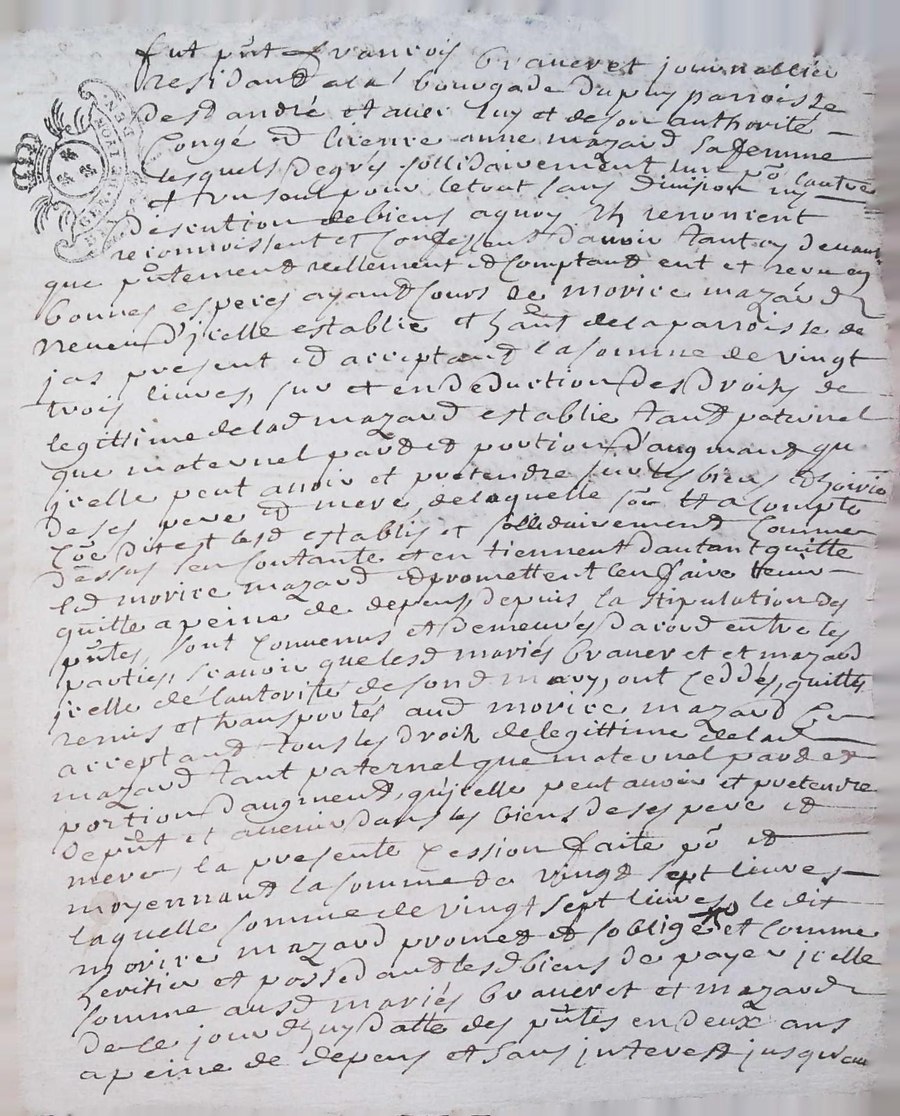 fut pñt françois braveret journallier
residant a la bourgade du puy parroisse
de st andré et avec luy et de son authorité
congé et licence anne mazard sa femme
lesquels de gré sollidairement lun põ lautre
et un seul pour le tout sans division ny
desention de biens a quoy ils renoncent
reconnoissent et confessent davoir tant cy devant
que pñtement reellement et comptand eut et receu en
bonnes especes ayand cours de morice mazard
neveu d'icelle establie et hañt de la parroisse de
jas present et acceptand la somme de vingt
trois livres, sur et en deduction des droits de
legittime de lad mazard establie tand paternel
que maternel pard et portion d'augmand qu
icelle peut avoir et pretendre sur les biens et hoirie
de ses pere et mere, de laquelle sõe et a compte
cõe dit est lesd establis et sollidairement comme
dessus sen contante et en tiennent dautant quitte
led morice mazard et promettent len faire tenir
quitte a peine de depens, depuis la stipulation des
pñtes, sont convenus et demeurés dacord entre les
parties, scavoir que lesd mariés braveret et mazard
icelle de lautorité de sond mary, ont ceddés, quittés
remis et transportés aud morice mazard
acceptand tous les droits de legittime de lad
mazard tant paternel que maternel pard et
portion daugmend, qu'icelle peut avoir et pretendre
de pñt et avenir dans les biens de ses pere et
mere, la presente cession faite põ et
moyennand la somme de vingt sept livres
laquelle somme de vingt sept livres, le dit
morice mazard promet et soblige et comme
heritier et possedant lesd biens de payer icelle
somme ausd mariés braveret et mazard
de ce jourdhuy datte des pñtes en deux ans
a peine de depens et sans interest jusqu'au
GEN DE LION